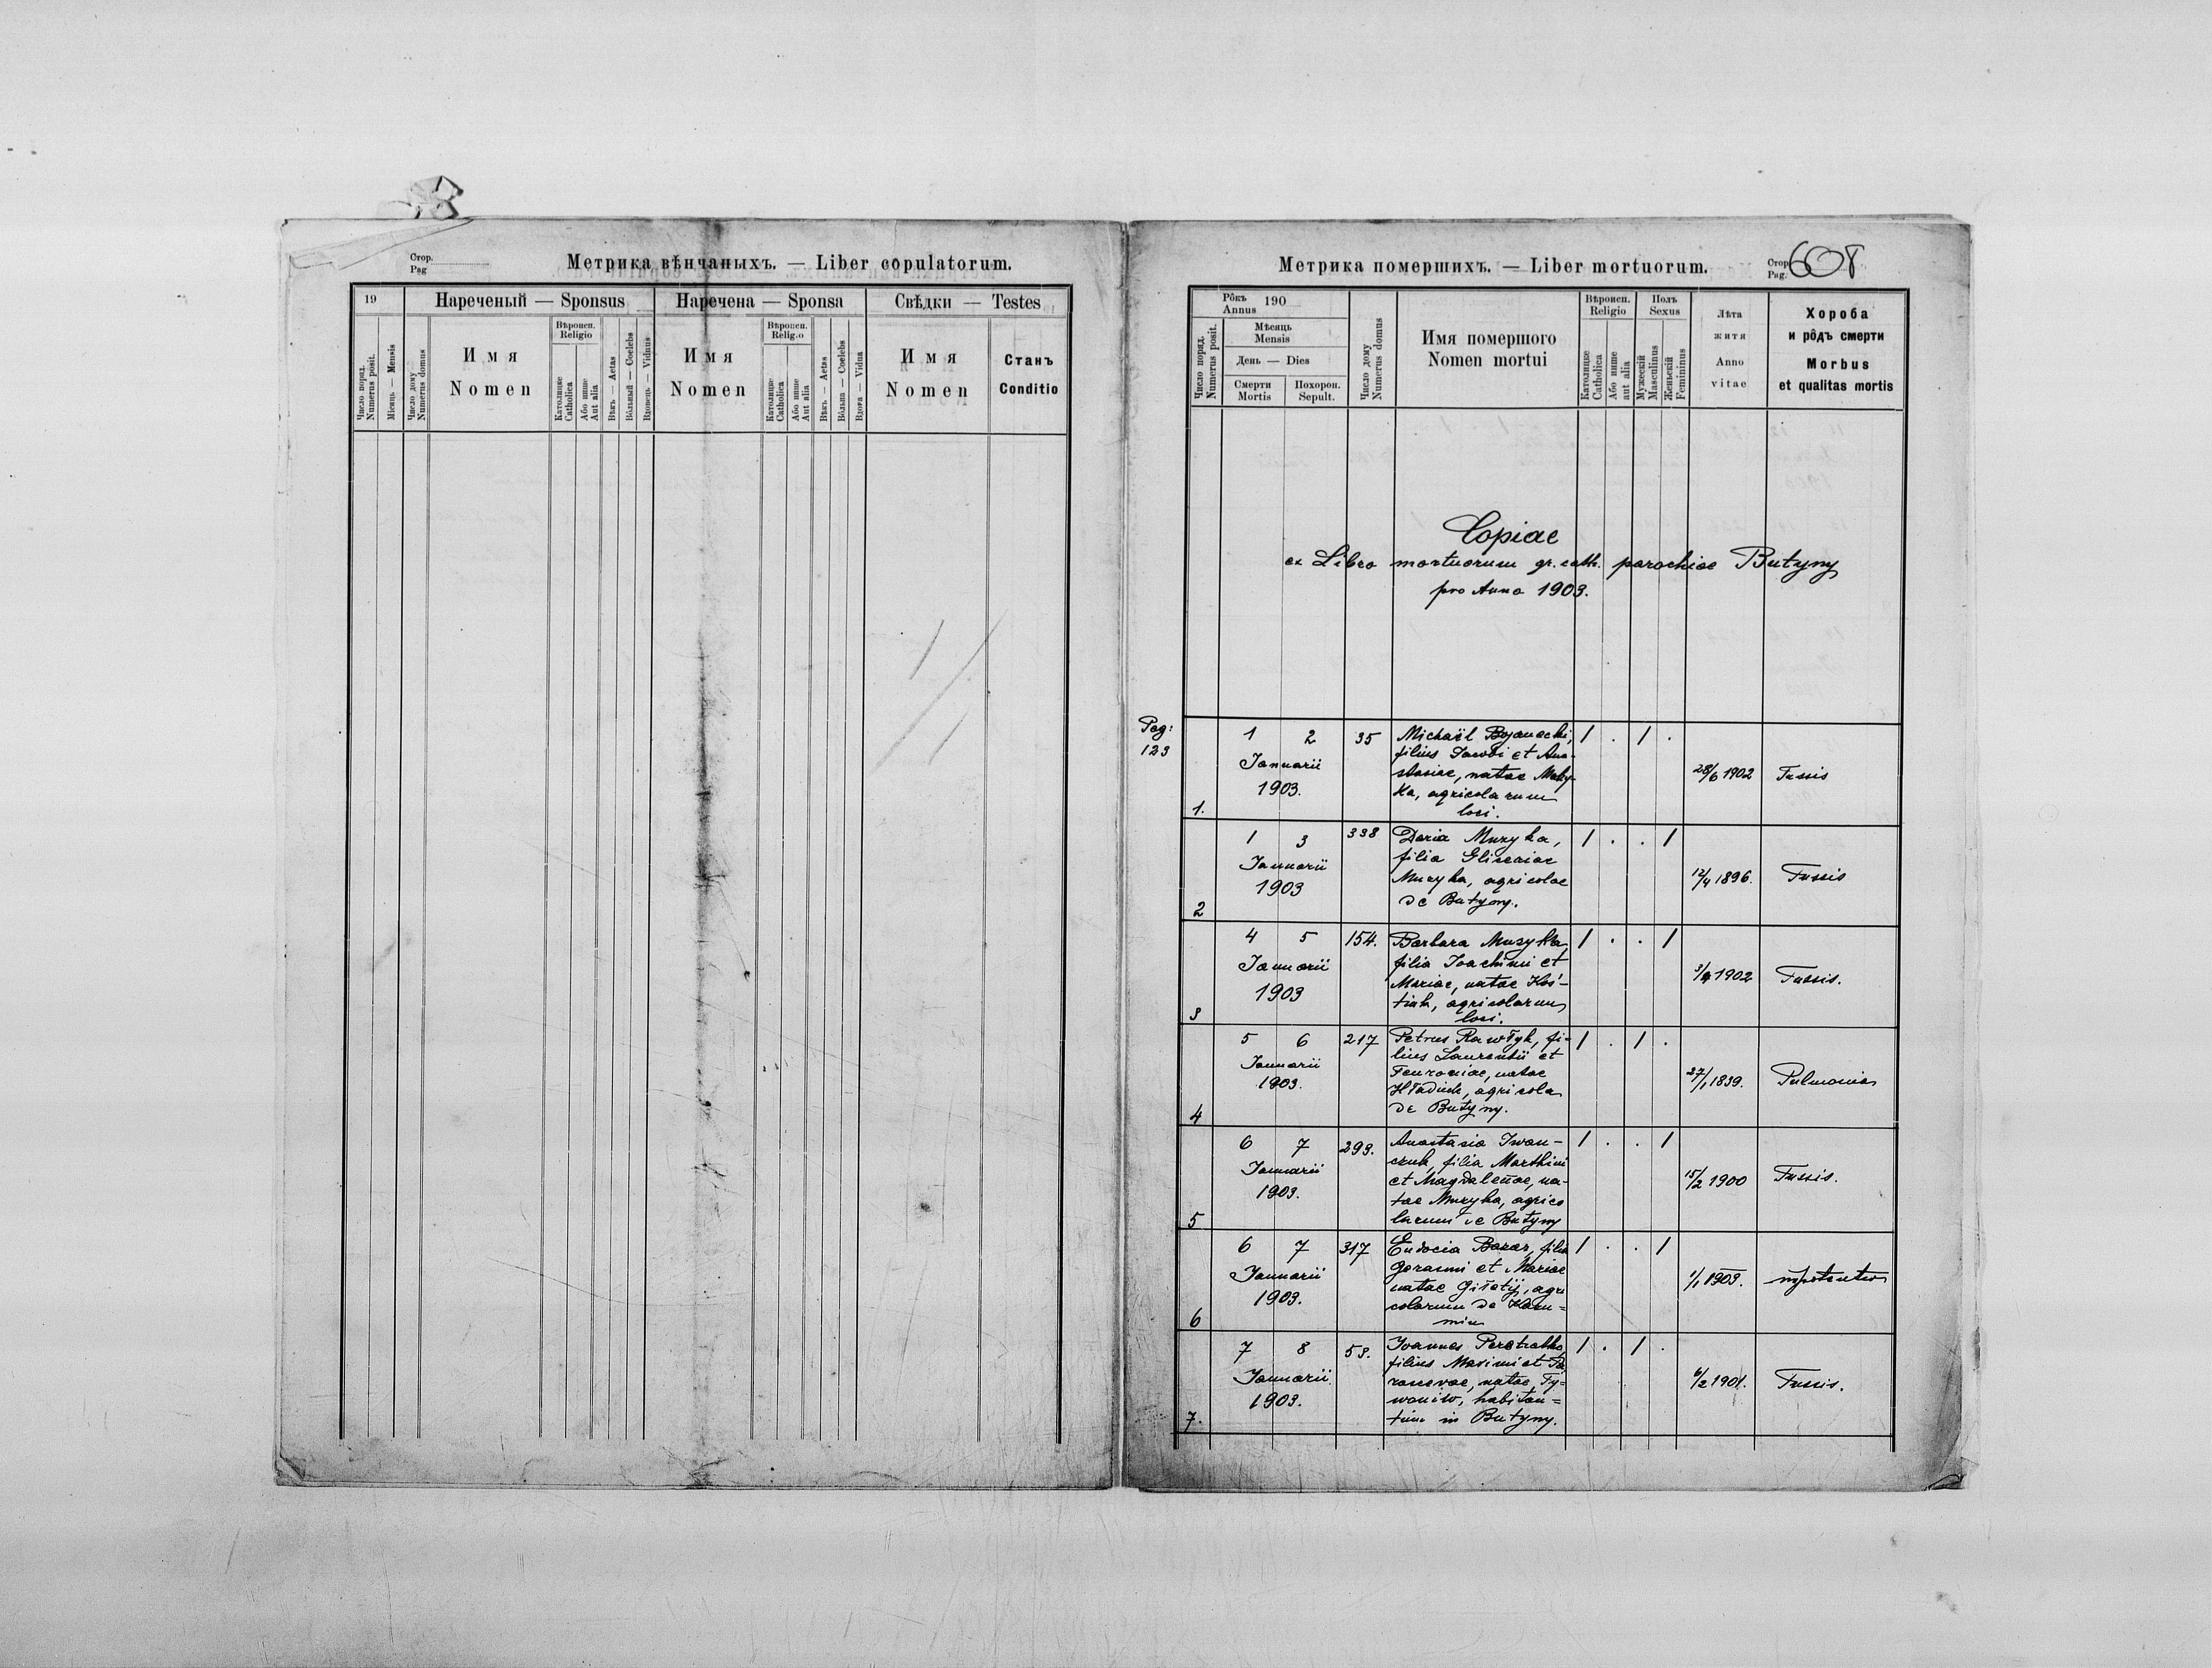 Стор.
Pag
Метрика вѣнчаныхъ. — Liber copulatorum.
19
Нареченый — Sponsus
Наречена — Sponsa
Свѣдки — Testes
Число поряд.
Numerus posit.
Місяць — Mensis
Число дому
Numerus domus
Имя
Nomen
Вѣроисп.
Religio
Католицке
Catholica
Або инше
Aut alia
Вѣкъ — Aetas
Вôльный — Coelebs
Вдовець — Viduus
Имя
Nomen
Вѣроисп.
Religio
Католицке
Catholica
Або инше
Aut alia
Вѣкъ — Aetas
Вôльна — Coelebs
Вдова — Vidua
Имя
Nomen
Станъ
Conditio
Метрика помершихъ. — Liber mortuorum.
Стор.
Pag.
608
Рôкъ
Annus
190
Число поряд.
Numerus posit.
Мѣсяць
Mensis
День — Dies
Смерти
Mortis
Похорон.
Sepult.
Число дому
Numerus domus
Имя помершого
Nomen mortui
Вѣроисп.
Religio
Католицке
Catholica
Або инше
aut alia
Полъ
Sexus
Мужескій
Masculinus
Женьскій
Femininus
Лѣта
житя
Anno
vitae
Хороба
и рôдъ смерти
Morbus
et qualitas mortis
Copiae
ex Libro mortuorum gr. cath. parochiae Butyny
pro Anno 1903.
Pag:
123
1.
1 2
Januarii
1903.
35
Michaël Bojanecki,
filius Jacobi et Ana-
stasiae, natae Muzy-
ka, agricolarum
loci.
1 . 1 .
28/6 1902
Tussis
2
1 3
Januarii
1903
338
Daria Muzyka,
filia Gliceriae
Muzyka, agricolae
de Butyny.
1 . . 1
12/4 1896.
Tussis
3
4 5
Januarii
1903
154.
Barbara Muzyka,
filia Joachimi et
Mariae, natae Koś-
tiuk, agricolarum
loci.
1 . . 1
1902
Tussis.
4
5 6
Januarii
1903.
217
Petrus Rawłyk, fi-
lius Laurentii et
natae
Hładiuk, agricola
de Butyny.
1 . 1 .
27/1 1839.
Pulmonia
5
6 7
Januarii
1903.
293.
Anastasia Iwan-
czuk, filia Marthini
et Magdalenae, na-
tae Muzyka, agrico
larum de Butyny
1 . . 1
15/2 1900
Tussis.
6
6 7
Januarii
1903.
317
Eudocia Bazar, filia
Gerasimi et Mariae
natae agri
colarum de
1 . . 1
1/1 1903.
7.
7 8
Januarii
1903.
53.
Joannes
filius Maximi et Pa
natae Ty-
woniw, habitan-
tium in Butyny.
1 . 1 .
6/2 1901.
Tussis.